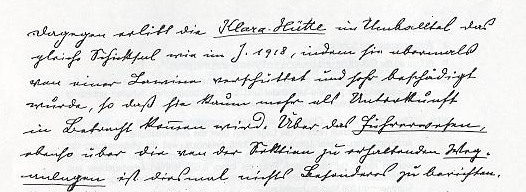 dagegen erlitt die Klara-Hütte im Umbaltal das
gleiche Schicksal wie im J. 1918, indem sie abermals
von einer Lawine verschüttet und sehr beschädigt
wurde, so daß sie kaum mehr als Unterkunft
in Betracht kommen wird. Über das Führerwesen,
ebenso über die von der Sektion zu erhaltenden Weg-
anlagen ist diesmal nichts Besonderes zu berichten.